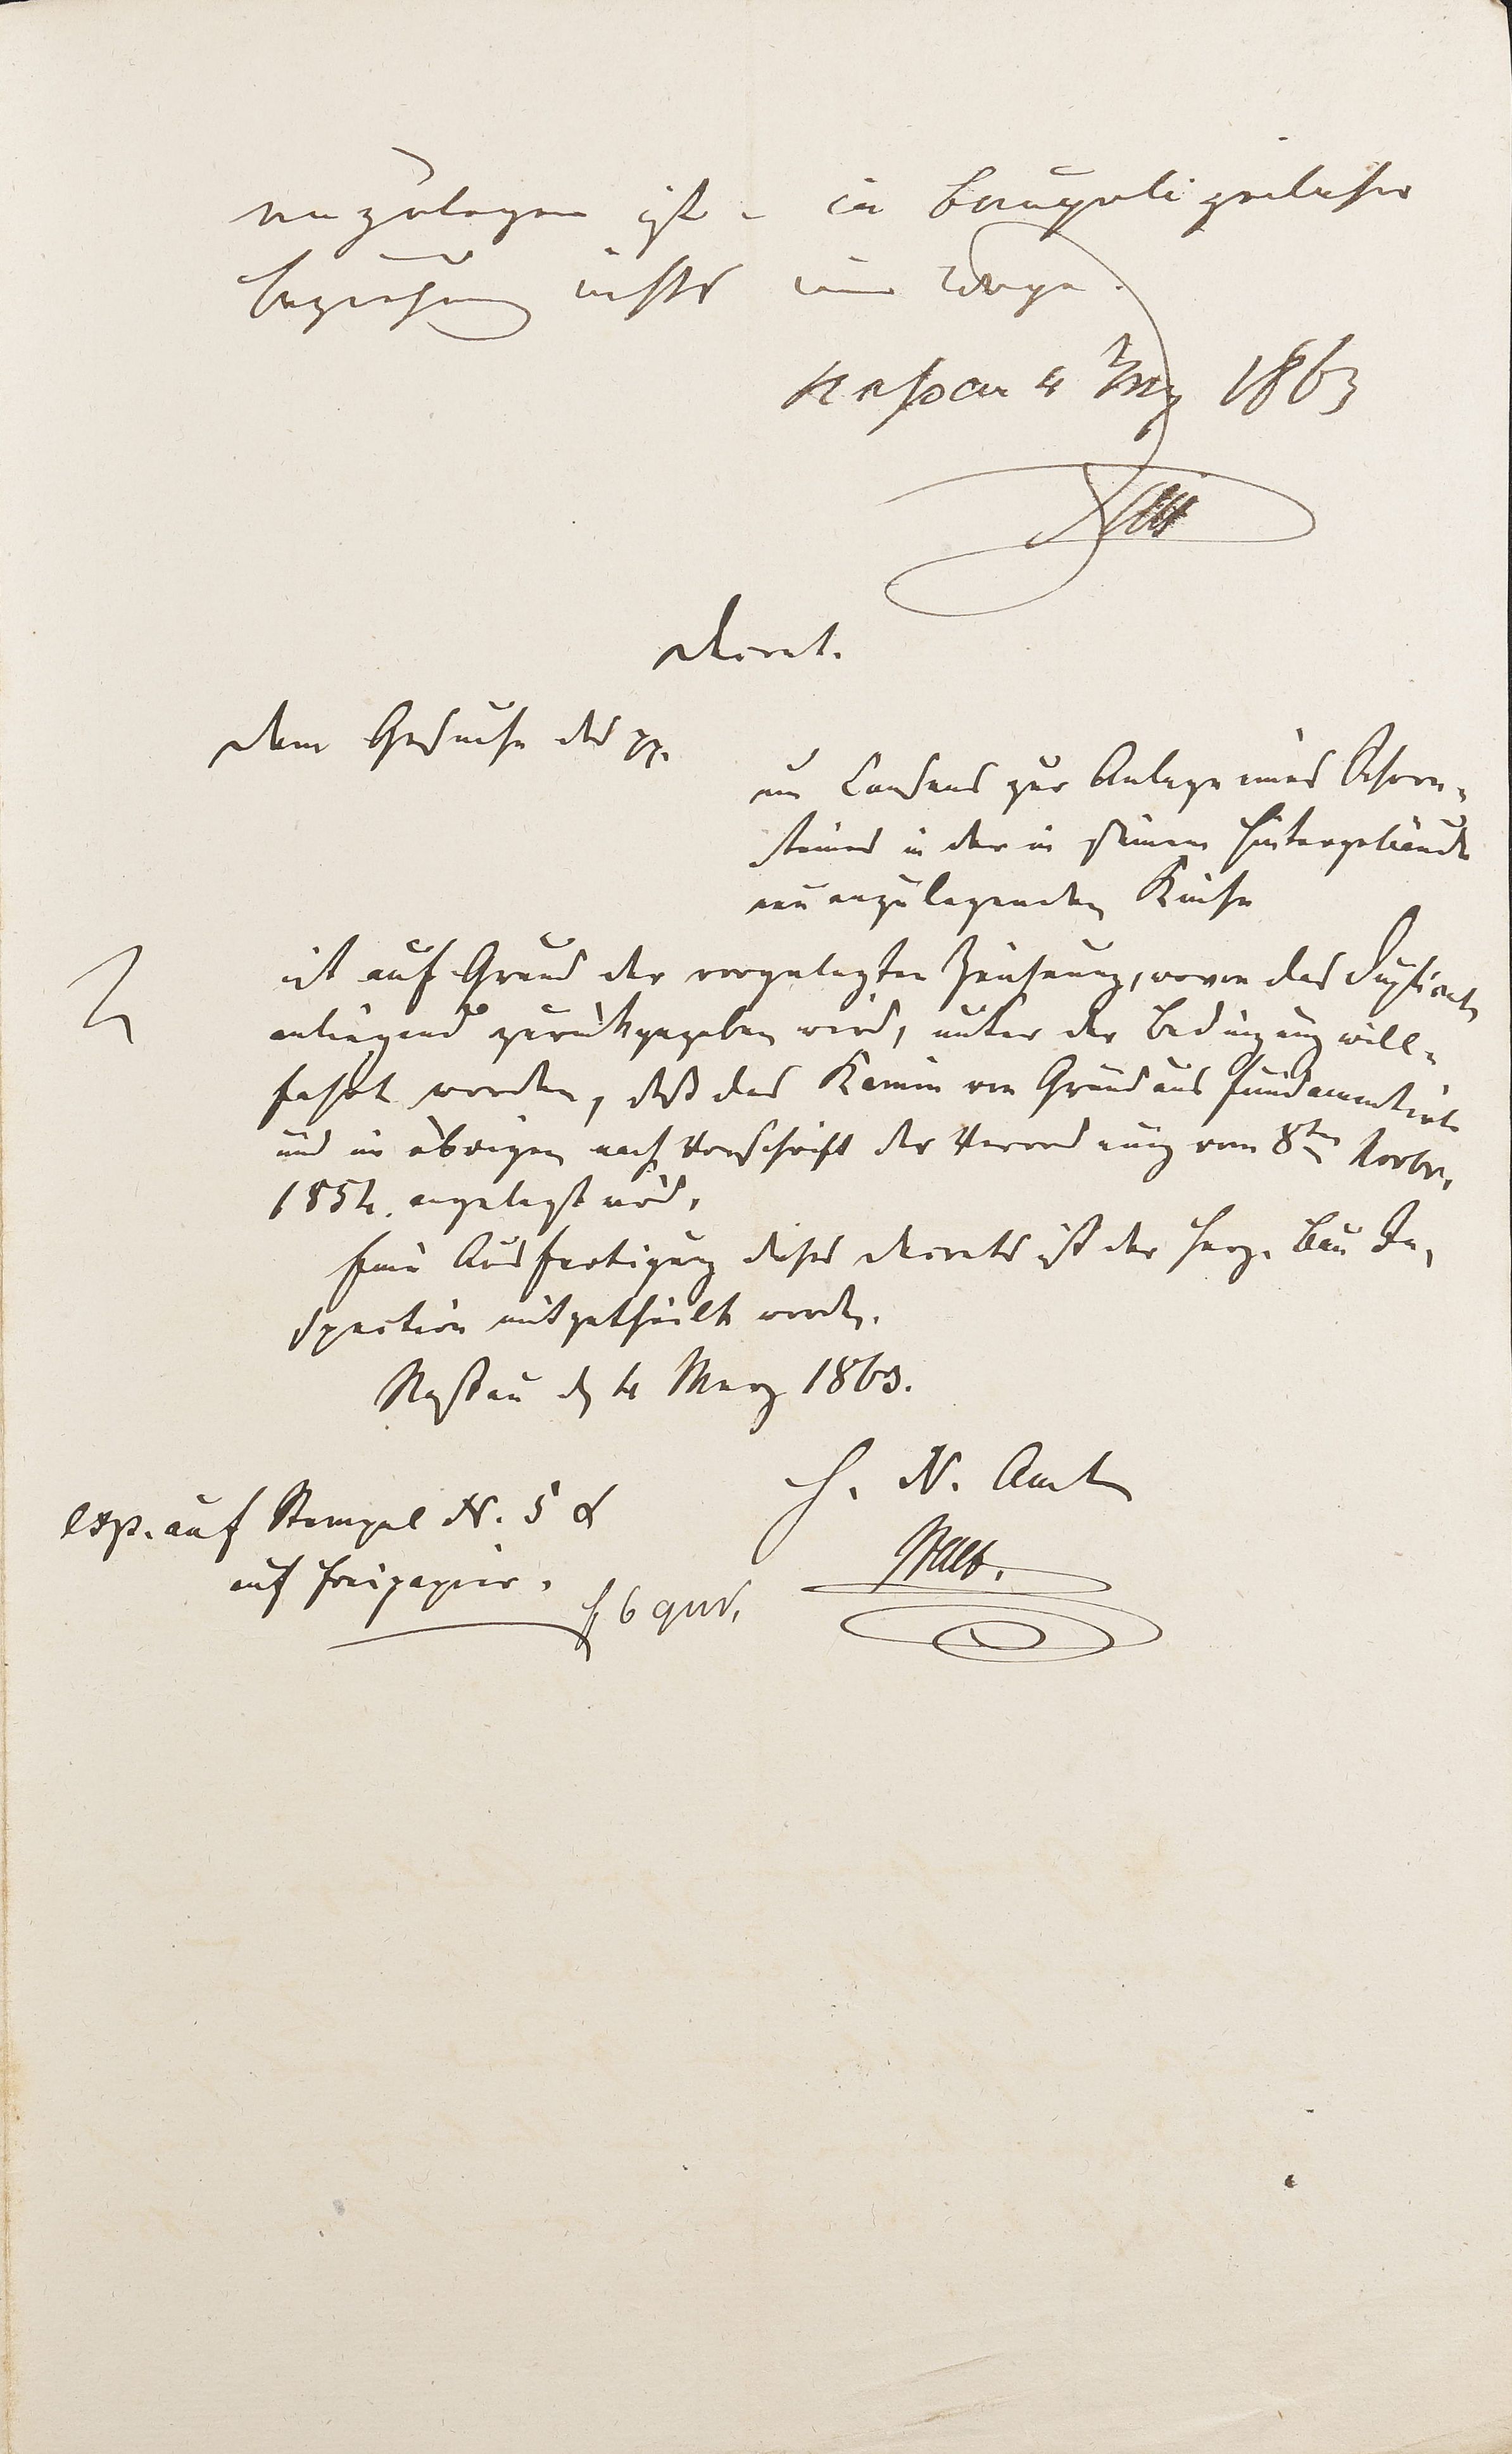 anzulegen ist – in baupolizeilicher
Beziehung nichts im Wege.
Nassau 4 Mrz 1863
Decret.
Dem Gesuche des pp.
um Consens zur Anlage eines Schorn-
steines in der in seinem Hintergebäude
neuanzulegenden Küche
ist auf Grund der vorgelegten Zeichnung, wovon das Duplicat
anliegend zurückgegeben wird, unter der Bedingung will-
fahrt worden, daß das Kamin von Grund aus fundamentirt
und im übrigen nach Vorschrift der Verordnung vom 8ten Novbr.
1854. angelegt wird.
Eine Ausfertigung dieses Decrets ist der Herz. Bau In-
spection mitgetheilt worden.
Nassau d. 4 Merz 1863.
H. N. Amt
exp. auf Stempel N. 5 &
auf Freipapier.